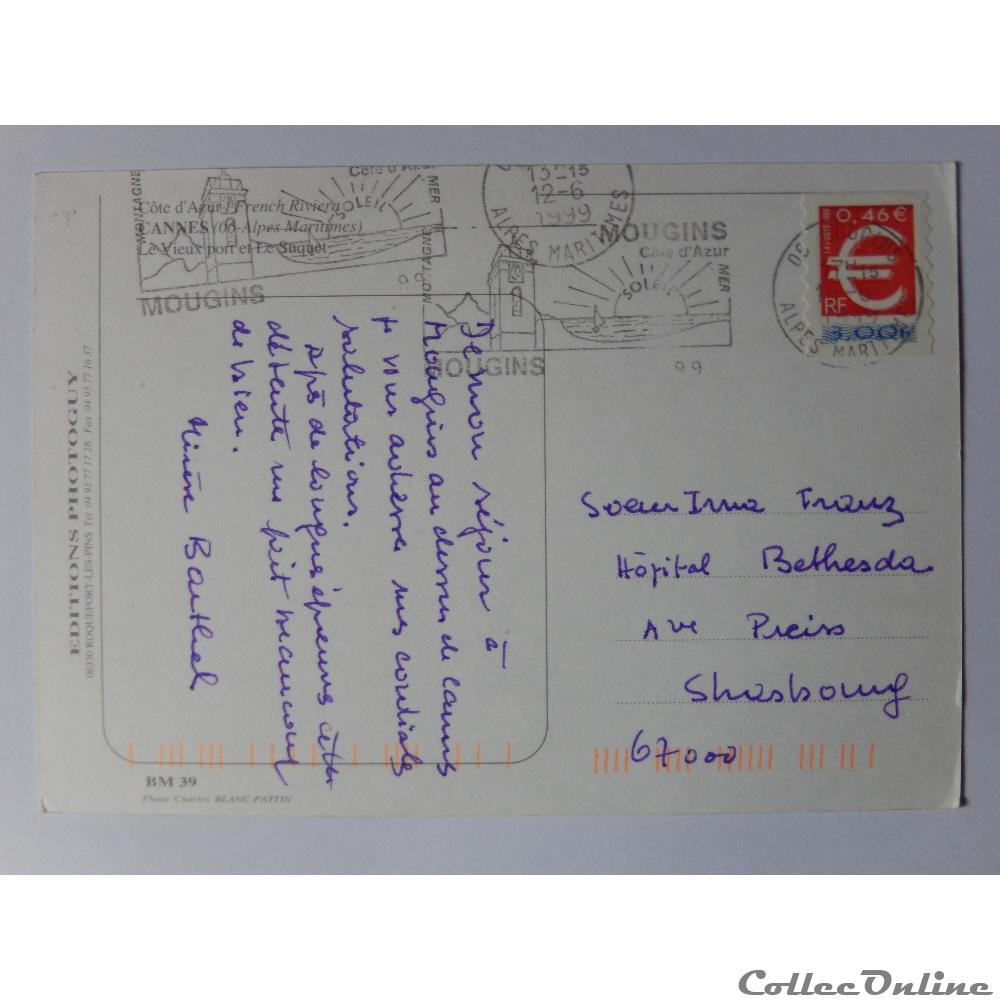 Côte d'Azur / French Riviera
CANNES (06-Alpes Maritimes)
Le Vieux port et Le Suquet
MONTAGNE
Côte d'Azur
SOLEIL
MER
MOUGINS
13-15
12-6
1999
ALPES MARITIMES
MOUGINS
Côte d'Azur
MONTAGNE
SOLEIL
MER
MOUGINS
99
LA POSTE 1999
0,46 €
€
RF
3,00F
06
ALPES MARITIMES
De mon séjour à
Mougins au dessus de Cannes
je vous adresse mes cordiales
salutations.
Après de longues épreuves cette
détente me fait beaucoup
de bien.
Barthel
Soeur Irma Franz
Hôpital Bethesda
Ave Preiss
Strasbourg
67000
EDITIONS PHOTOGUY
06330 ROQUEFORT-LES-PINS Tel 04 93 77 17 28 Fax 04 93 77 16 37
BM 39
Photo Charles BLANC-PATTIN
CollecOnline